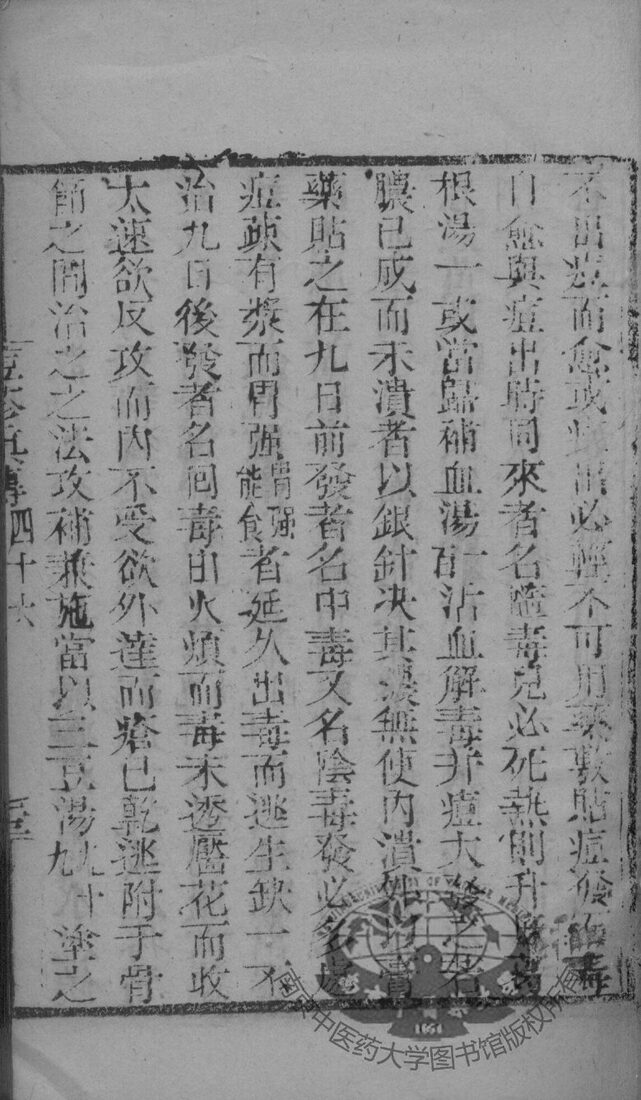 不出痘而愈或痘出必輕不可用藥敷貼痘發毒
自愈與痘出時同來者名毒兒必死熱側升葛
根湯一或當歸補血湯百一活血解毒并痘大發之名
膿已成而未潰者以銀針决其膿無使内潰外
藥貼之在九日前發者名中毒又名陰毒發必多處
痘疎有漿而胃强胃强能食者延久出毒而逃生缺一不
治九日後發者名囘毒由火煩而毒未透靨花而收
太速欲反攻而内不受欲外達而瘡已乾逃附于骨
節之間治之之法攻補兼施當以三豆湯九十塗之
四十六
中医药大学图书馆版权所有